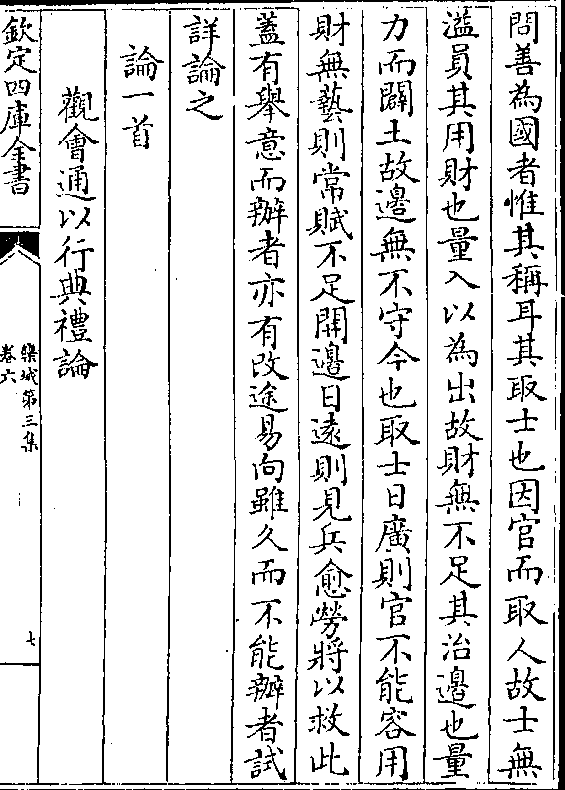 問善為國者惟其稱耳其取士也因官而取人故士無
溢員其用財也量入以為出故財無不足其治邊也量
力而闢土故邊無不守今也取士日廣則官不能容用
財無藝則常賦不足開邊日遠則見兵愈勞將以救此
蓋有舉意而辦者亦有改途易向雖久而不能辦者試
詳論之
論一首
觀會通以行典禮論
欽定四庫全書
欒城第三集
卷六
七